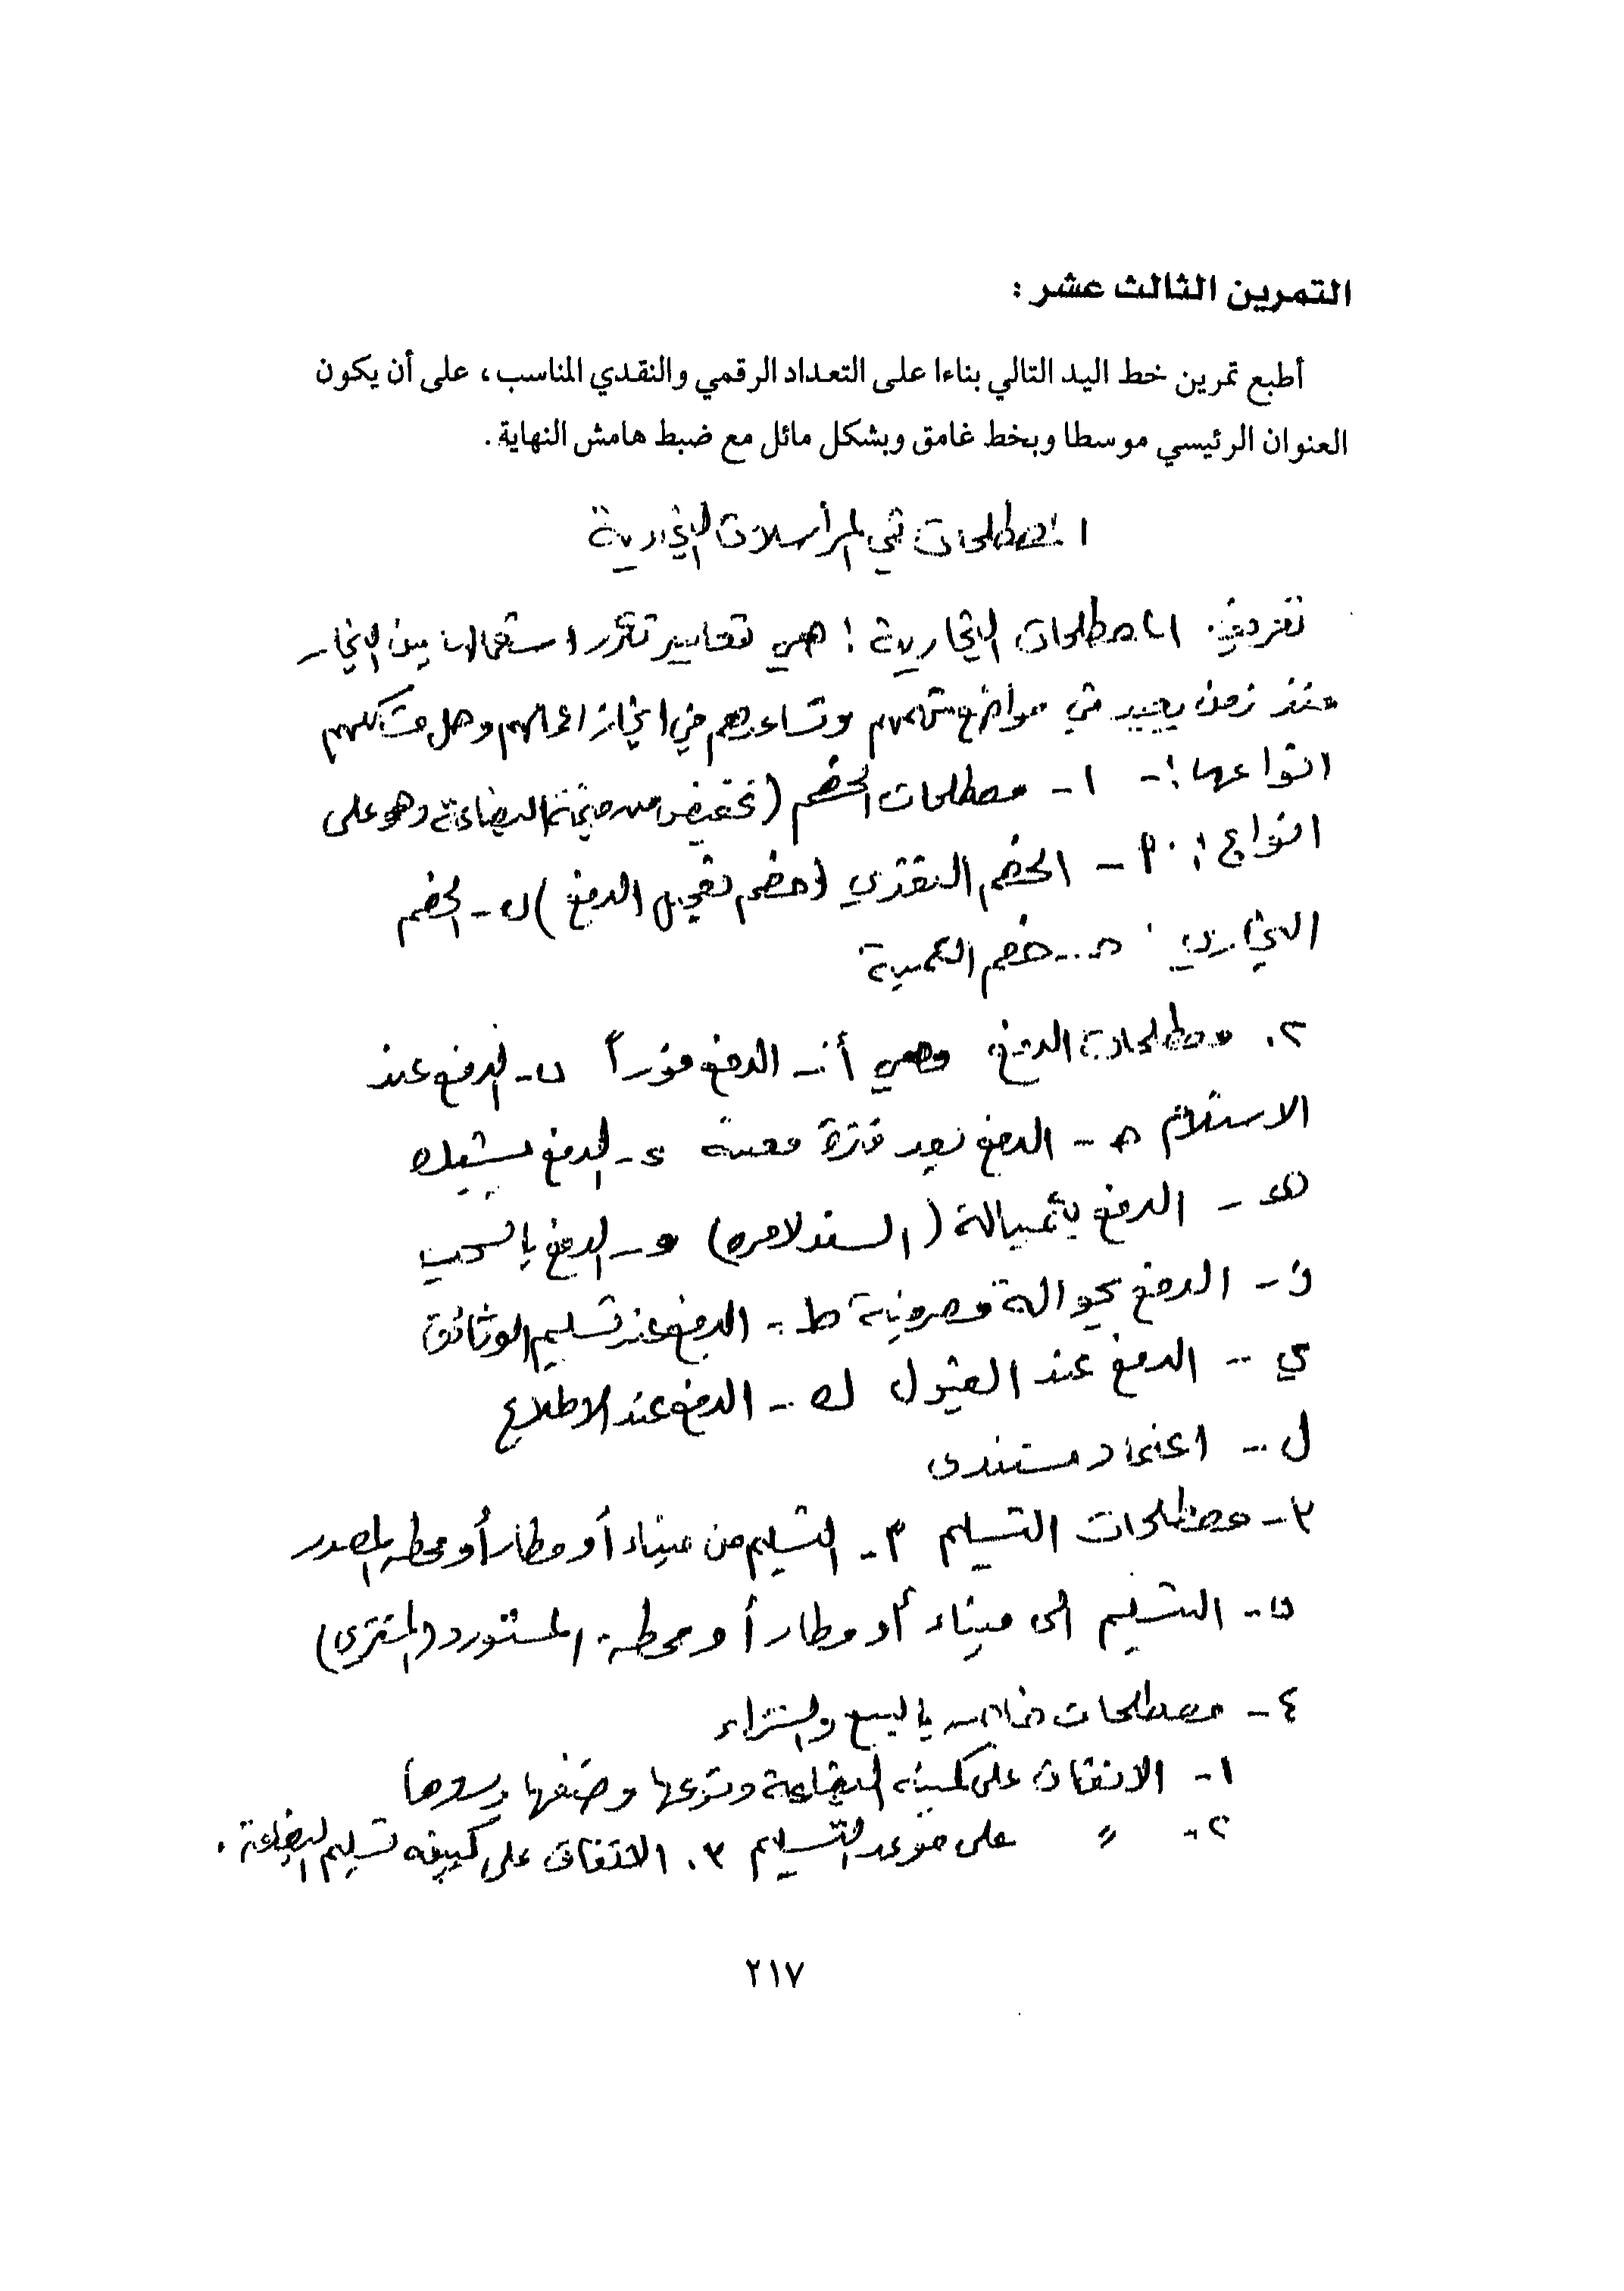 التمرين الثالث عشر :
أطبع تمرين خط اليد التالي بناءا على التعداد الرقمي والنقدي المناسب ، على أن يكون
العنوان الرئيسي موسطا وبخط غامق وبشكل مائل مع ضبط هامش النهاية .
المصطلحات في المراسلات التجارية
تعريف المصطلحات التجارية : هي تعابير تكرر استعمالها بين التجار
منذ زمن بعيد في مواضع تهمهم وتساعدهم في انجاز اعمالهم وحل مشاكلهم
انواعها :- ١- مصطلحات الخصم (تخفيض من قيمة البضاعة وهو على
انواع : أ - الخصم النقدي (خصم تعجيل الدفع) ب - الخصم
التجاري ح - خصم الكمية
٢. مصطلحات الدفع وهي أ - الدفع فوراً ب - الدفع عند
الاستلام ح - الدفع بعد فترة معينة ء - الدفع بشيك
هـ - الدفع بكمبيالة (السند لأمره) و - الدفع بالسحب
ز - الدفع بحوالة مصرفية ط - الدفع عند تسليم الوثائق
ي - الدفع عند القبول ك - الدفع عند الاطلاع
ل - اعتماد مستندى
٣- مصطلحات التسليم أ - التسليم من ميناء أو مطار أو محطه المصدر
ب - التسليم الى ميناء أو مطار أو محطة المستورد (المشترى)
٤- مصطلحات خاصه بالبيع والشراء
١- الاتفاق على كمية البضاعة ونوعها وصنفها وسعرها
٢- " على موعد التسليم ٣. الاتفاق على كيفيه تسليم البضاعة .
٢١٧